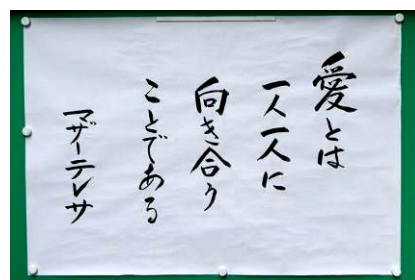 愛とは
一人一人に
向き合う
ことである
マザーテレサ